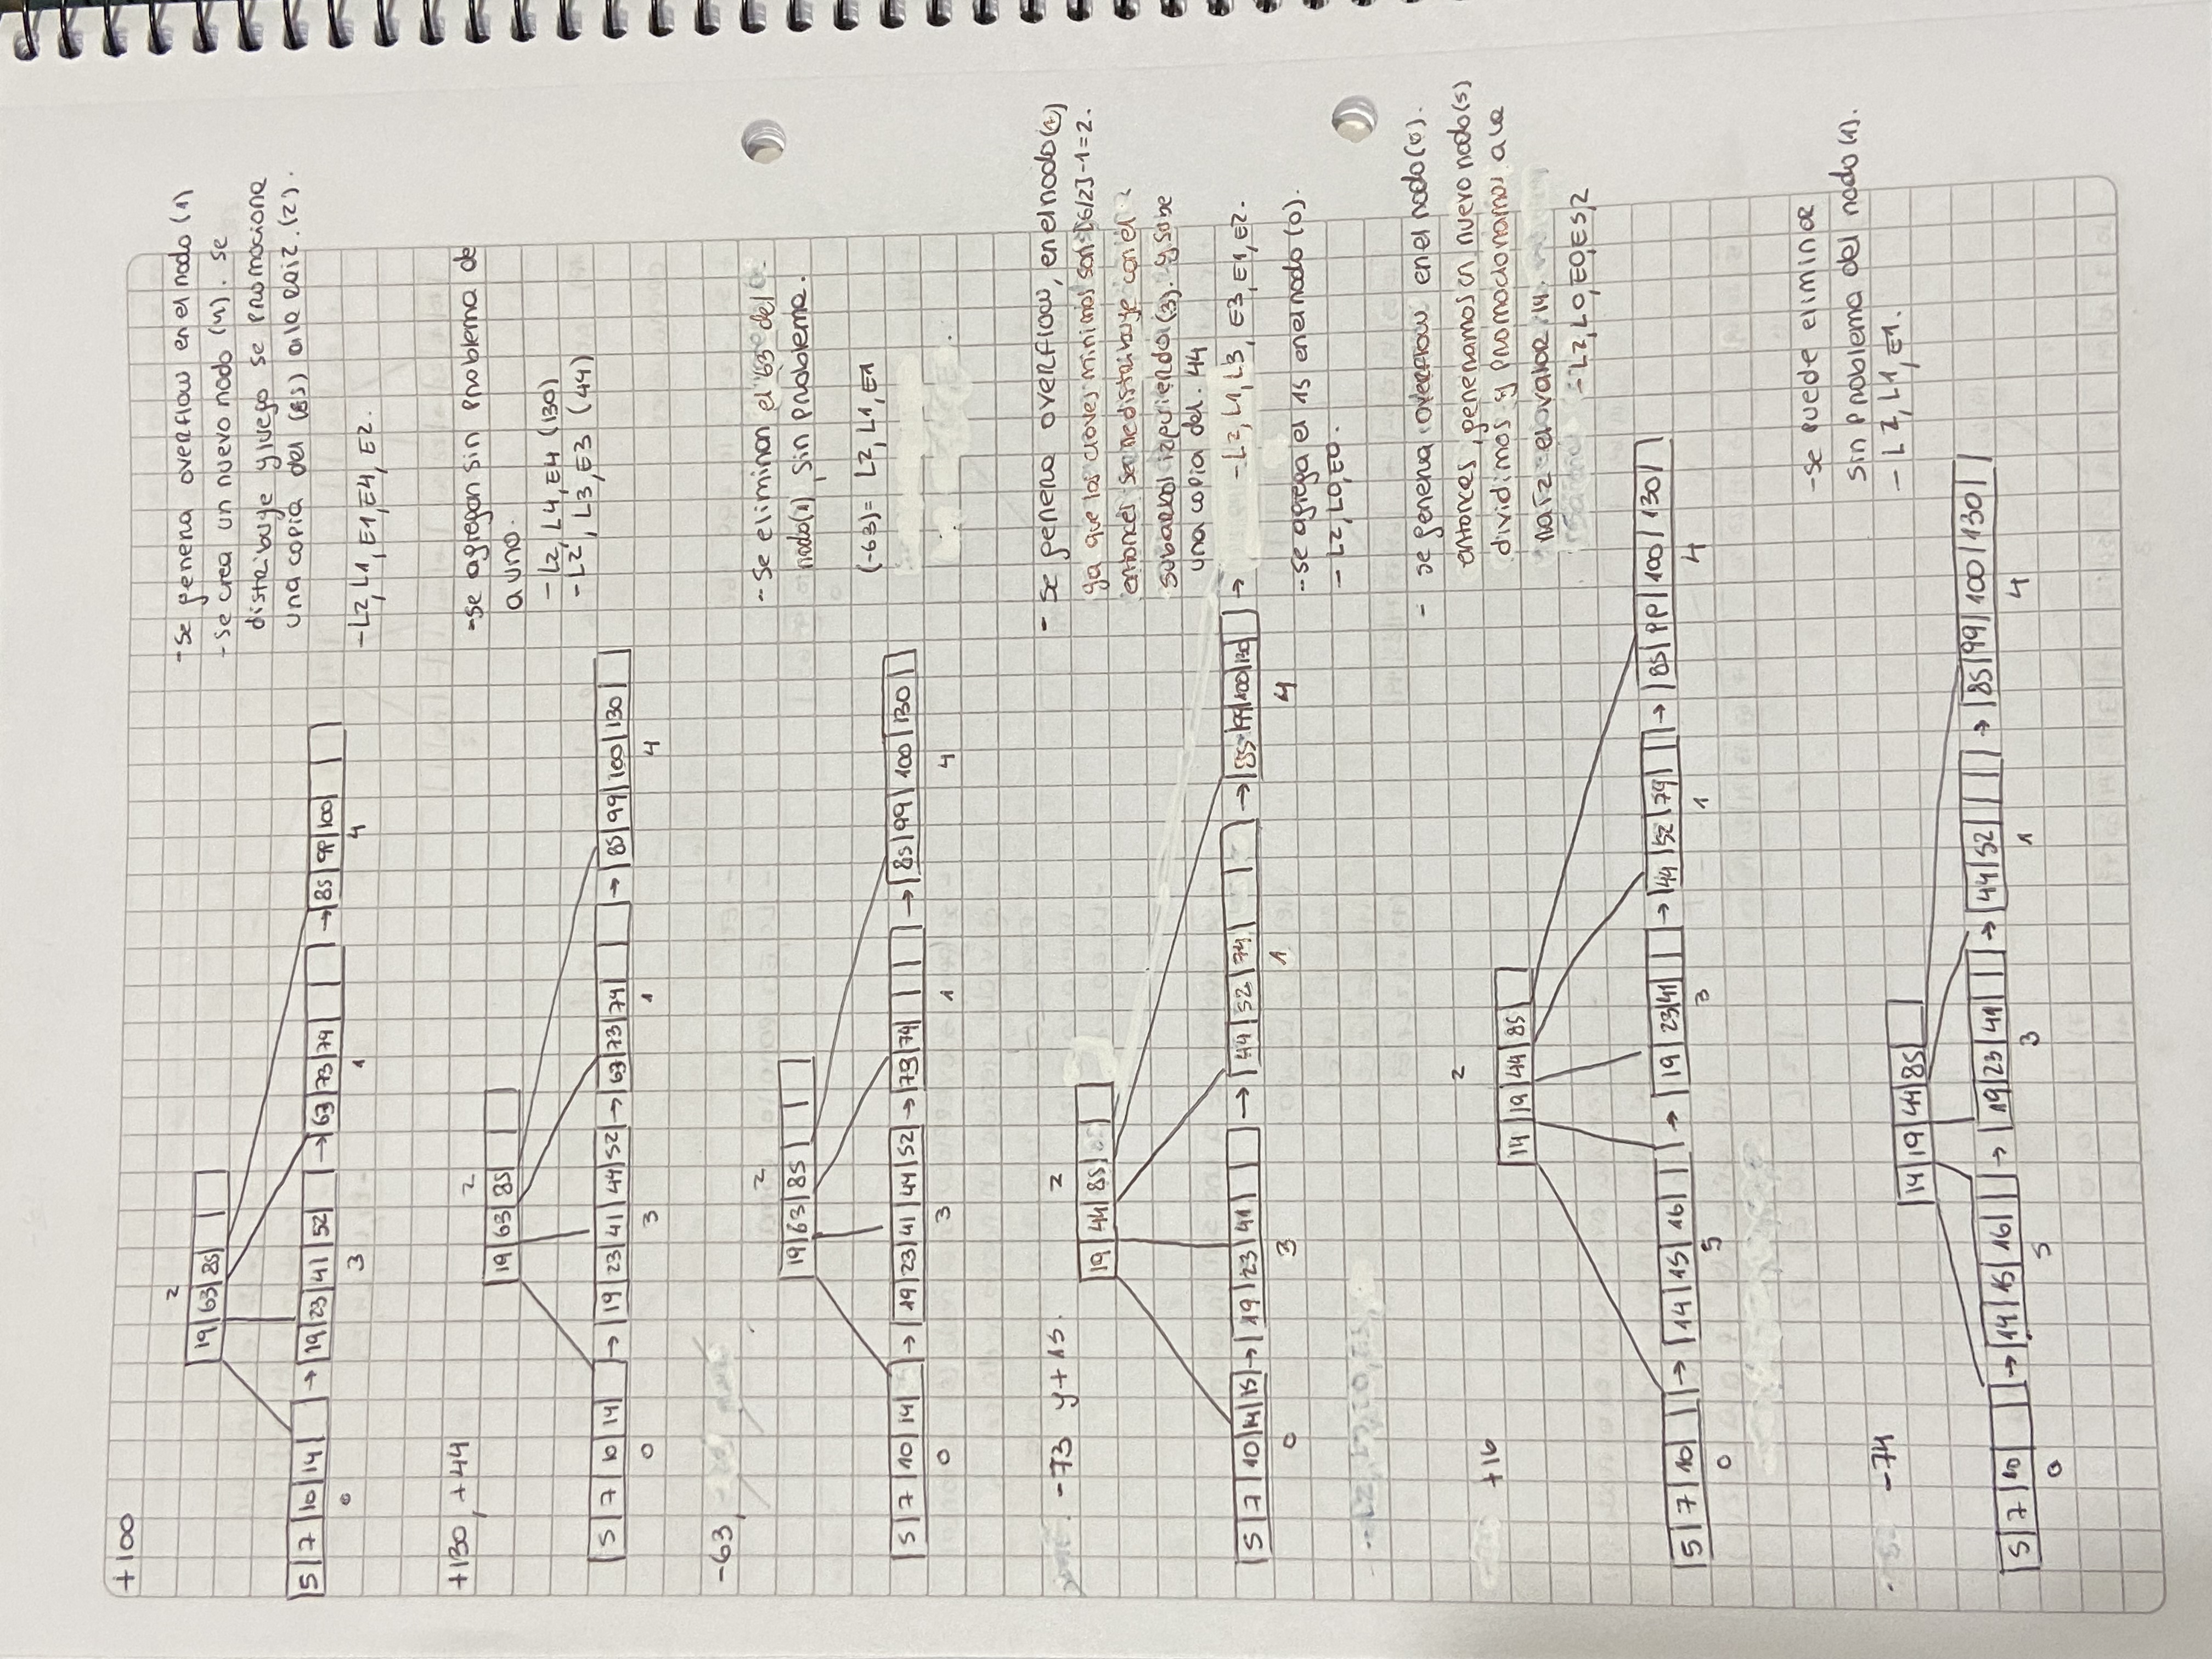 +100
2
19 63 85
5 7 10 14 → 19 23 41 52 → 63 73 79 → 85 99 100
0 3 1 4
-se genera overflow en el nodo (1)
-se crea un nuevo nodo (4). se
distribuye y luego se promociona
una copia del (85) a la raiz. (2).
-L2, L1, E1, E4, E2.
+130, +44
2
19 63 85
5 7 10 14 → 19 23 41 44 52 → 63 73 74 → 85 99 100 130
0 3 1 4
-se agregan sin problema de
a uno.
-L2, L4, E4 (130)
-L2, L3, E3 (44)
-63,
2
19 63 85
5 7 10 14 → 19 23 41 44 52 → 73 74 → 85 99 100 130
0 3 1 4
-se eliminan el 63 del
nodo(1), sin problema.
(-63)= L2, L1, E1
-73 y +15.
2
19 44 85
5 7 10 14 15 → 19 23 41 → 44 52 74 → 85 99 100 130 →
0 3 1 4
- se genera overflow, en el nodo(1)
ya que las claves minimas son [6/2]-1=2.
entonces se redistribuye con el
subarbol izquierdo (3). y sube
una copia del. 44
-L2, L1, L3, E3, E1, E2.
-se agrega el 15 en el nodo (0).
- L2, L0, E0.
+16
2
14 19 44 85
5 7 10 → 14 15 16 → 19 23 41 → 44 52 74 → 85 99 100 130
0 5 3 1 4
- se genera overflow en el nodo(0).
entonces, generamos un nuevo nodo(5)
dividimos y promocionamos a la
raiz el valor 14.
-L2, L0, E0, E5, 2
-74
14 19 44 85
5 7 10 → 14 15 16 → 19 23 41 → 44 52 → 85 99 100 130
0 5 3 1 4
-se puede eliminar
sin problema del nodo (1).
- L2, L1, E1.